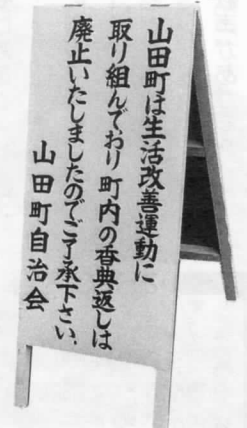 山田町は生活改善運動に
取り組んでおり町内の香典返しは
廃止いたしましたのでご了承下さい.
山田町自治会